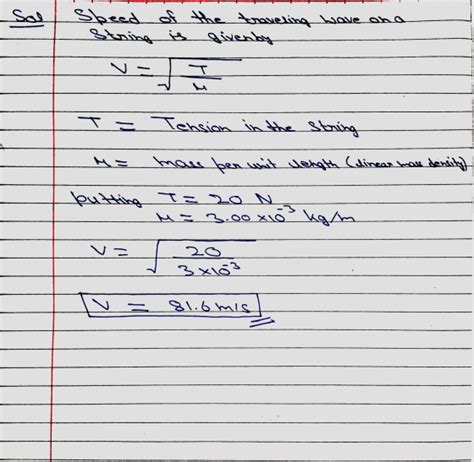 Sol Speed of the traveling wave on a
String is given by
V = √(T/μ)
T = Tension in the string
μ = mass per unit length (linear mass density)
putting T = 20 N
μ = 3.00 ×10⁻³ kg/m
V = √(20/3×10⁻³)
V = 81.6 m/s